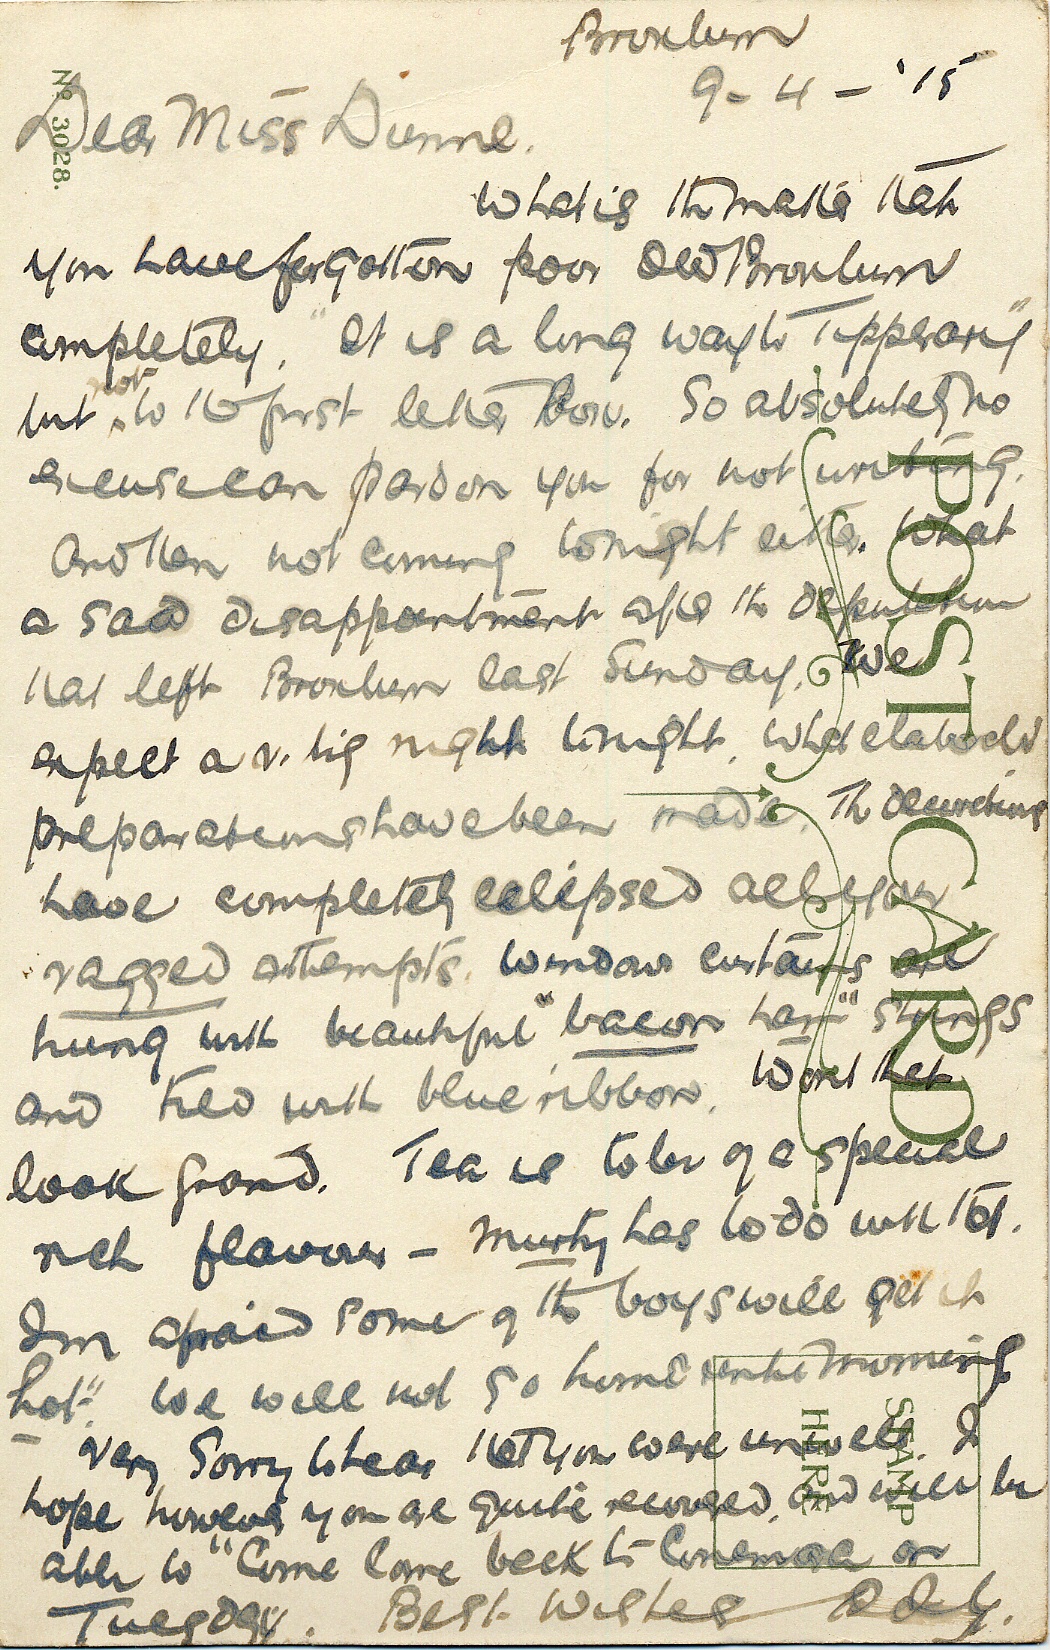 Broxburn
9-4-'15
Dear Miss Dunne.
What is the matter that
you have forgotten poor old Broxburn
completely. "It is a long way to Tipperary"
but not to the first letter box. So absolutely no
excuse can pardon you for not writing.
And then not coming tonight either. What
a sad disappointment after the deputation
that left Broxburn last Sunday. We
expect a v. big night tonight. What elaborate
preparations have been made. The decorations
have completely eclipsed all your
ragged attempts. Window curtains are
hung with beautiful "bacon ham" strings
and tied with blue ribbon. Wont that
look grand. Tea is to be of a special
rich flavour - Murty has to do with that.
Im afraid some of the boys will get it
hot". We will not go home until morning
Very Sorry to hear that you were unwell. I
hope however you are quite recovered, and will be
able to "Come Come back to" on
Tuesday. Best Wishes
No 3028.
POST CARD
STAMP
HERE